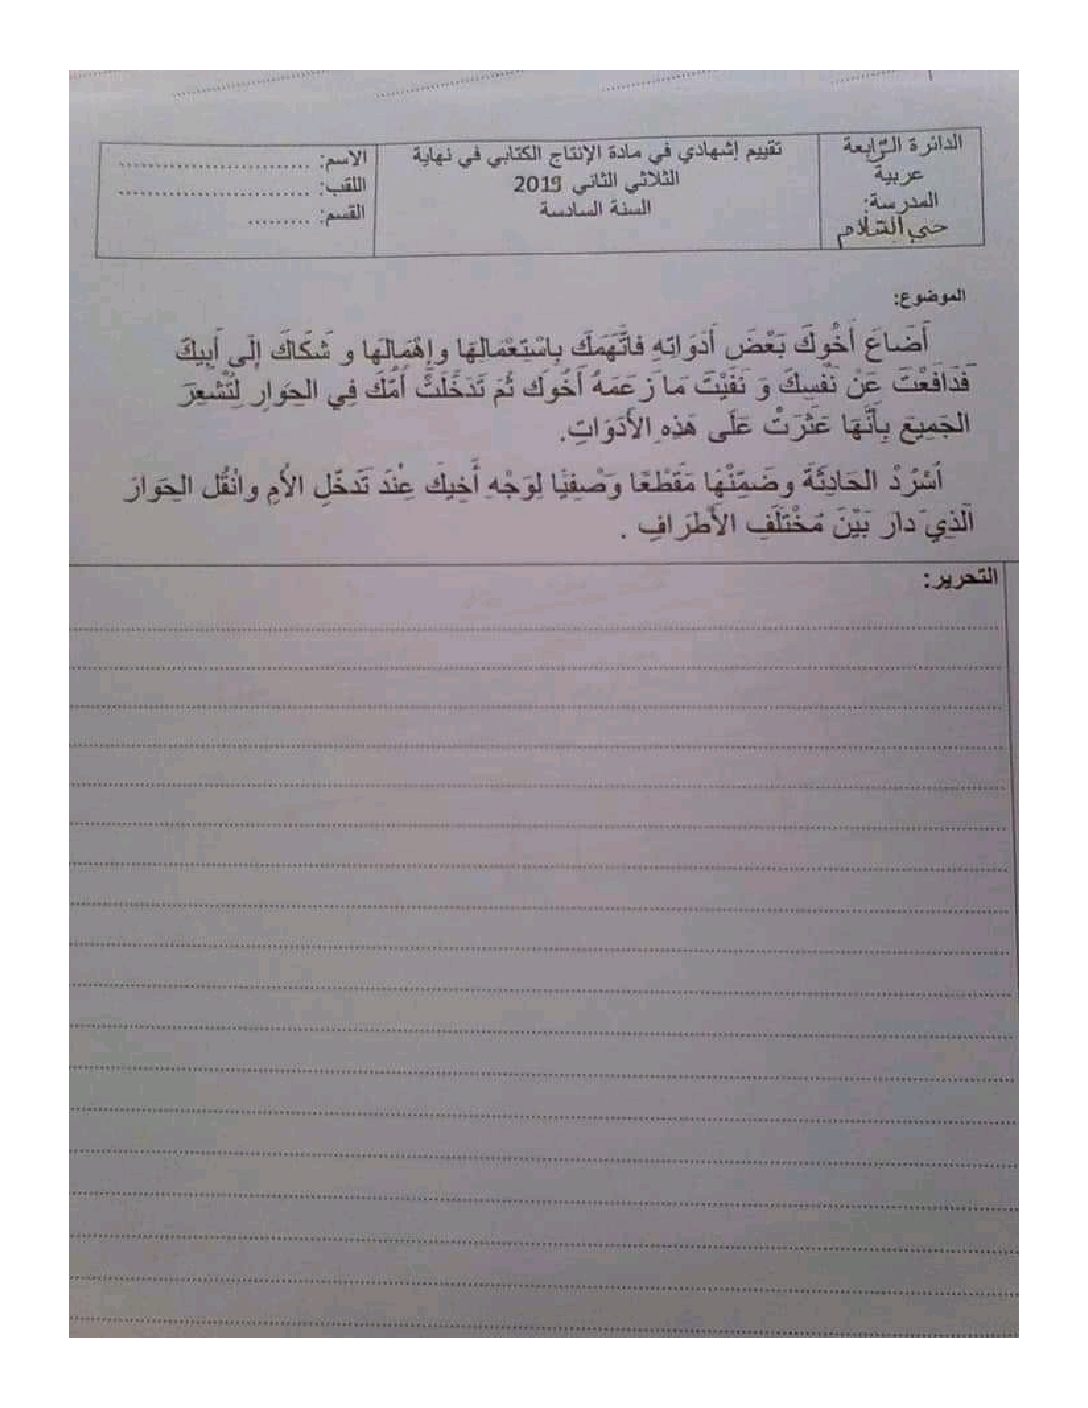 الدائرة الرّابعة
عربية
المدرسة:
حي السّلام
تقييم إشهادي في مادة الإنتاج الكتابي في نهاية
الثلاثي الثاني 2019
السنة السادسة
الاسم: ............................
اللقب: ............................
القسم: .........
الموضوع:
أَضَاعَ أَخُوكَ بَعْضَ أَدَوَاتِهِ فَاتَّهَمَكَ بِاسْتِعْمَالِهَا وإِهْمَالِهَا و شَكَاكَ إِلَى أَبِيكَ
فَدَافَعْتَ عَنْ نَفْسِكَ وَ نَفَيْتَ مَا زَعَمَهُ أَخُوكَ ثُمَّ تَدَخَّلَتْ أُمُّكَ فِي الحِوَارِ لِتُشْعِرَ
الجَمِيعَ بِأَنَّهَا عَثَرَتْ عَلَى هَذِهِ الأَدَوَاتِ.
اُسْرُدْ الحَادِثَةَ وضَمِّنْهَا مَقْطَعًا وَصْفِيًّا لِوَجْهِ أَخِيكَ عِنْدَ تَدَخُّلِ الأُمِ وانْقُل الحِوَارَ
الَّذِي دَارَ بَيْنَ مُخْتَلَفِ الأَطْرَافِ .
التحرير: